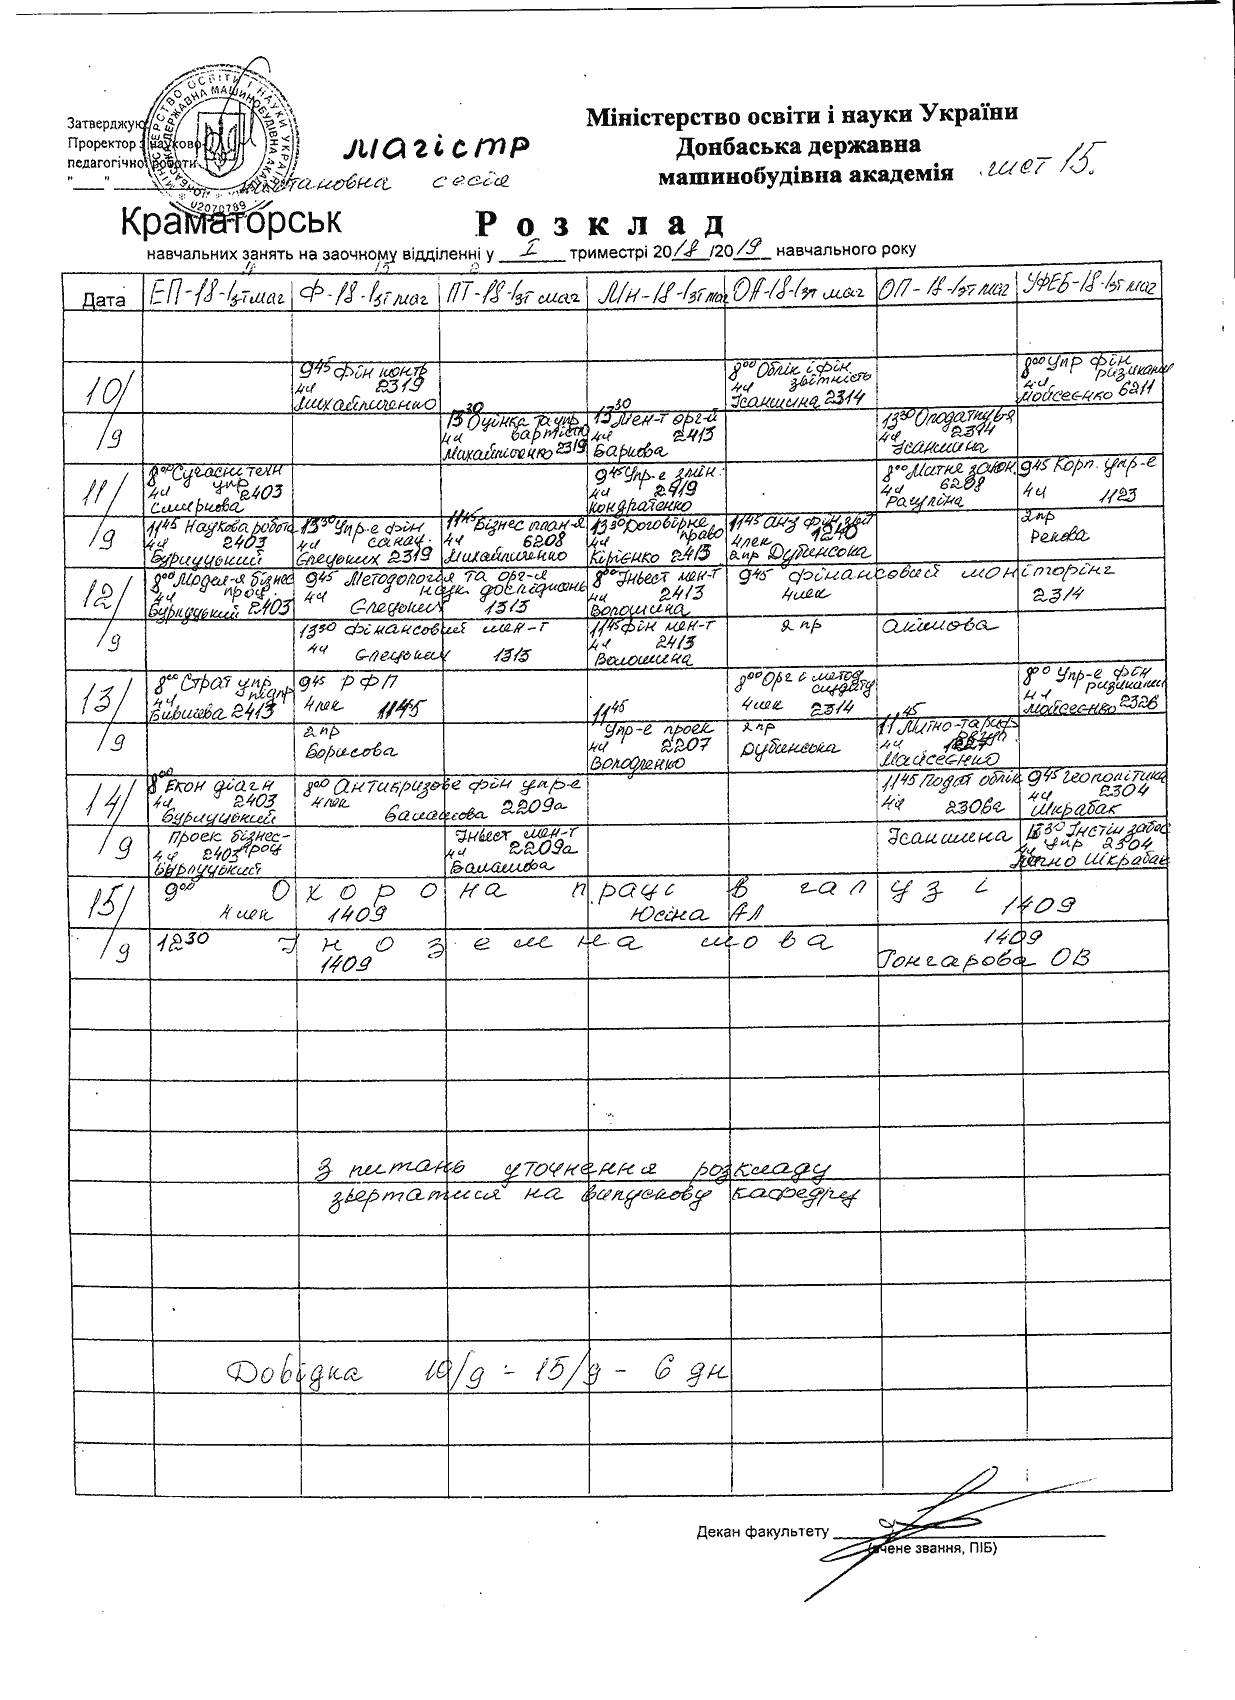 Затверджую
Проректор з науково
педагогічної роботи
"___" ____
МІНІСТЕРСТВО ОСВІТИ І НАУКИ УКРАЇНИ
02070789
магістр
Міністерство освіти і науки України
Донбаська державна
машинобудівна академія
лист 15.
установна сесія
Краматорськ
Розклад
навчальних занять на заочному відділенні у I триместрі 2018/2019 навчального року
Дата ЕП-18-1зтмаг Ф-18-1зтмаг ПТ-18-1зт маг МН-18-1зт маг ОА-18-1зт маг ОП-18-1зт маг УФЕБ-18-1зт маг
10/9
9⁴⁵ Фін контр
4ч 2319
Михайличенко
8⁰⁰ Облік і фін
4ч звітність
Ісаншина 2314
8⁰⁰ Упр фін
4ч ризиками
Мойсеєнко 6211
13³⁰ Оцінка та упр
4ч вартістю
Михайличенко 2319
13³⁰ Мен-т орг-й
4ч 2413
13³⁰ Оподаткув-я
4ч 2314
Ісаншина
11/9
8⁰⁰ Сучасні техн
4ч упр 2403
Смирнова
9⁴⁵ Упр-е змін.
4ч 2419
Кондратенко
8⁰⁰ Митне закон
4ч 6208
9⁴⁵ Корп. упр-е
4ч 1123
11⁴⁵ Наукова робота
4ч 2403
Бурлуцький
13³⁰ Упр-е фін
4ч санац.
Єлецьких 2319
11⁴⁵ Бізнес план-я
4ч 6208
Михайличенко
13³⁰ Договірне
4ч право
Кірієнко 2413
11⁴⁵ Анз фін зв
4лек 1240
2пр Дубинська
2пр
Рекова
12/9
8⁰⁰ Модел-я бізнес
4ч проц.
Бурлуцький 2403
9⁴⁵ Методологія та орг-я
4ч наук. досліджень
Єлецьких 1313
8⁰⁰ Інвест мен-т
4ч 2413
Волошина
9⁴⁵ Фінансовий моніторінг
4лек 2314
13³⁰ Фінансовий мен-т
4ч Єлецьких 1313
11⁴⁵ Фін мен-т
4ч 2413
Волошина
2 пр Акімова
13/9
8⁰⁰ Страт упр
4ч підпр
2413
9⁴⁵ РФП
4лек 1145
8⁰⁰ Орг і метод
4лек 2314
8⁰⁰ Упр-е фін
4ч ризиками
Мойсеєнко 2326
2пр
Борисова
11⁴⁵
Упр-е проек
4ч 2207
Володченко
2пр
Дубинська
11⁴⁵
Митно-тариф
4ч
Мойсеєнко
14/9
8⁰⁰
Екон діагн
4ч 2403
Бурлуцький
8⁰⁰ Антикризове фін упр-е
4лек Балашова 2209а
11⁴⁵ Подат облік
4ч 2306а
9⁴⁵ Геополітика
4ч 2304
Шкрабак
Проек бізнес-
4ч 2403 проц
Бурлуцький
Інвест мен-т
4ч 2209а
Балашова
Ісаншина
13³⁰ Інстін забес
4ч упр 2304
Шкрабак
15/9
9⁰⁰ Охорона праці в галузі
4лек 1409 Юсіна АЛ 1409
12³⁰ Іноземна мова 1409
1409 Гончарова ОВ
З питань уточнення розкладу
звертатися на випускову кафедру
Довідка 10/9 - 15/9 - 6 дн
Декан факультету ____
(вчене звання, ПІБ)